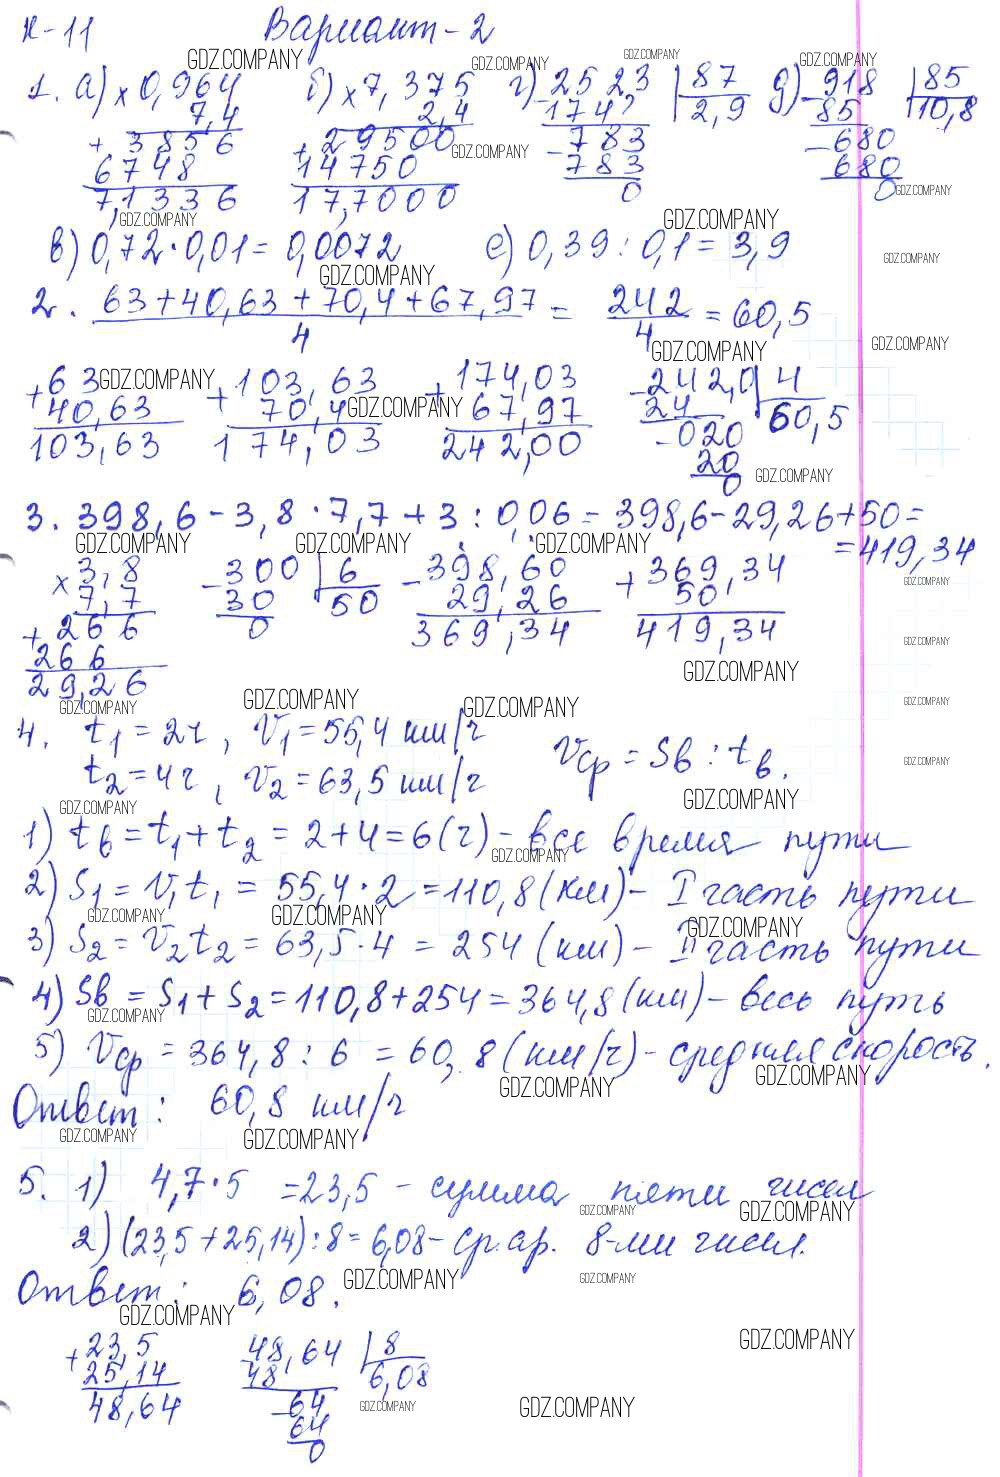 К-11 Вариант-2
1. а) × 0,964 б) × 7,375 г) - 252,3 | 87 д) - 918 | 85
7,4 2,4 174 2,9 85 10,8
+ 3856 + 29500 - 783 - 680
6748 14750 783 680
7,1336 17,7000 0 0
в) 0,72·0,01 = 0,0072 е) 0,39 : 0,1 = 3,9
2. 63+40,63+70,4+67,97 / 4 = 242 / 4 = 60,5
+ 63 + 103,63 + 174,03 - 242,0 | 4
40,63 70,4 67,97 24 60,5
103,63 174,03 242,00 - 020
20
0
3. 398,6 - 3,8 · 7,7 + 3 : 0,06 = 398,6 - 29,26 + 50 =
= 419,34
× 3,8 - 300 | 6 - 398,60 + 369,34
7,7 30 50 29,26 50
+ 266 0 369,34 419,34
266
29,26
4. t₁ = 2ч, V₁ = 55,4 км/ч
Vср = Sв : tв.
t₂ = 4ч, V₂ = 63,5 км/ч
1) tв = t₁ + t₂ = 2+4 = 6 (ч) - все время пути
2) S₁ = V₁t₁ = 55,4 · 2 = 110,8 (км) - I часть пути
3) S₂ = V₂t₂ = 63,5 · 4 = 254 (км) - II часть пути
4) Sв = S₁ + S₂ = 110,8 + 254 = 364,8 (км) - весь путь
5) Vср = 364,8 : 6 = 60,8 (км/ч) - средняя скорость.
Ответ: 60,8 км/ч
5. 1) 4,7 · 5 = 23,5 - сумма пяти чисел
2) (23,5 + 25,14) : 8 = 6,08 - ср. ар. 8-ми чисел.
Ответ: 6,08.
+ 23,5 - 48,64 | 8
25,14 48 6,08
48,64 - 64
64
0
GDZ.COMPANY